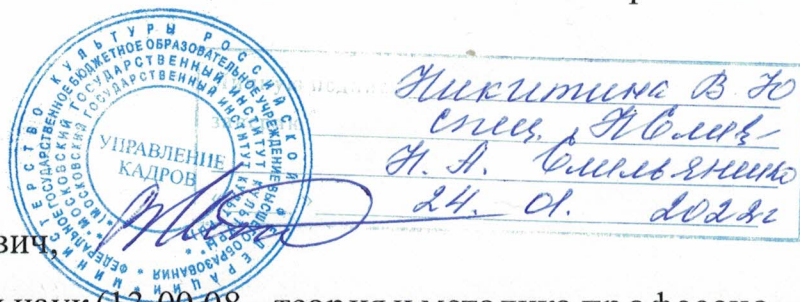 МИНИСТЕРСТВО КУЛЬТУРЫ РОССИЙСКОЙ ФЕДЕРАЦИИ
ФЕДЕРАЛЬНОЕ ГОСУДАРСТВЕННОЕ БЮДЖЕТНОЕ ОБРАЗОВАТЕЛЬНОЕ УЧРЕЖДЕНИЕ ВЫСШЕГО ОБРАЗОВАНИЯ
МОСКОВСКИЙ ГОСУДАРСТВЕННЫЙ ИНСТИТУТ КУЛЬТУРЫ
УПРАВЛЕНИЕ
КАДРОВ
Никитина В. Ю
спец.
Н. А. Емельяненко
24. 01. 2022г
вич,
наук (13.00.08 – теория и методика професси